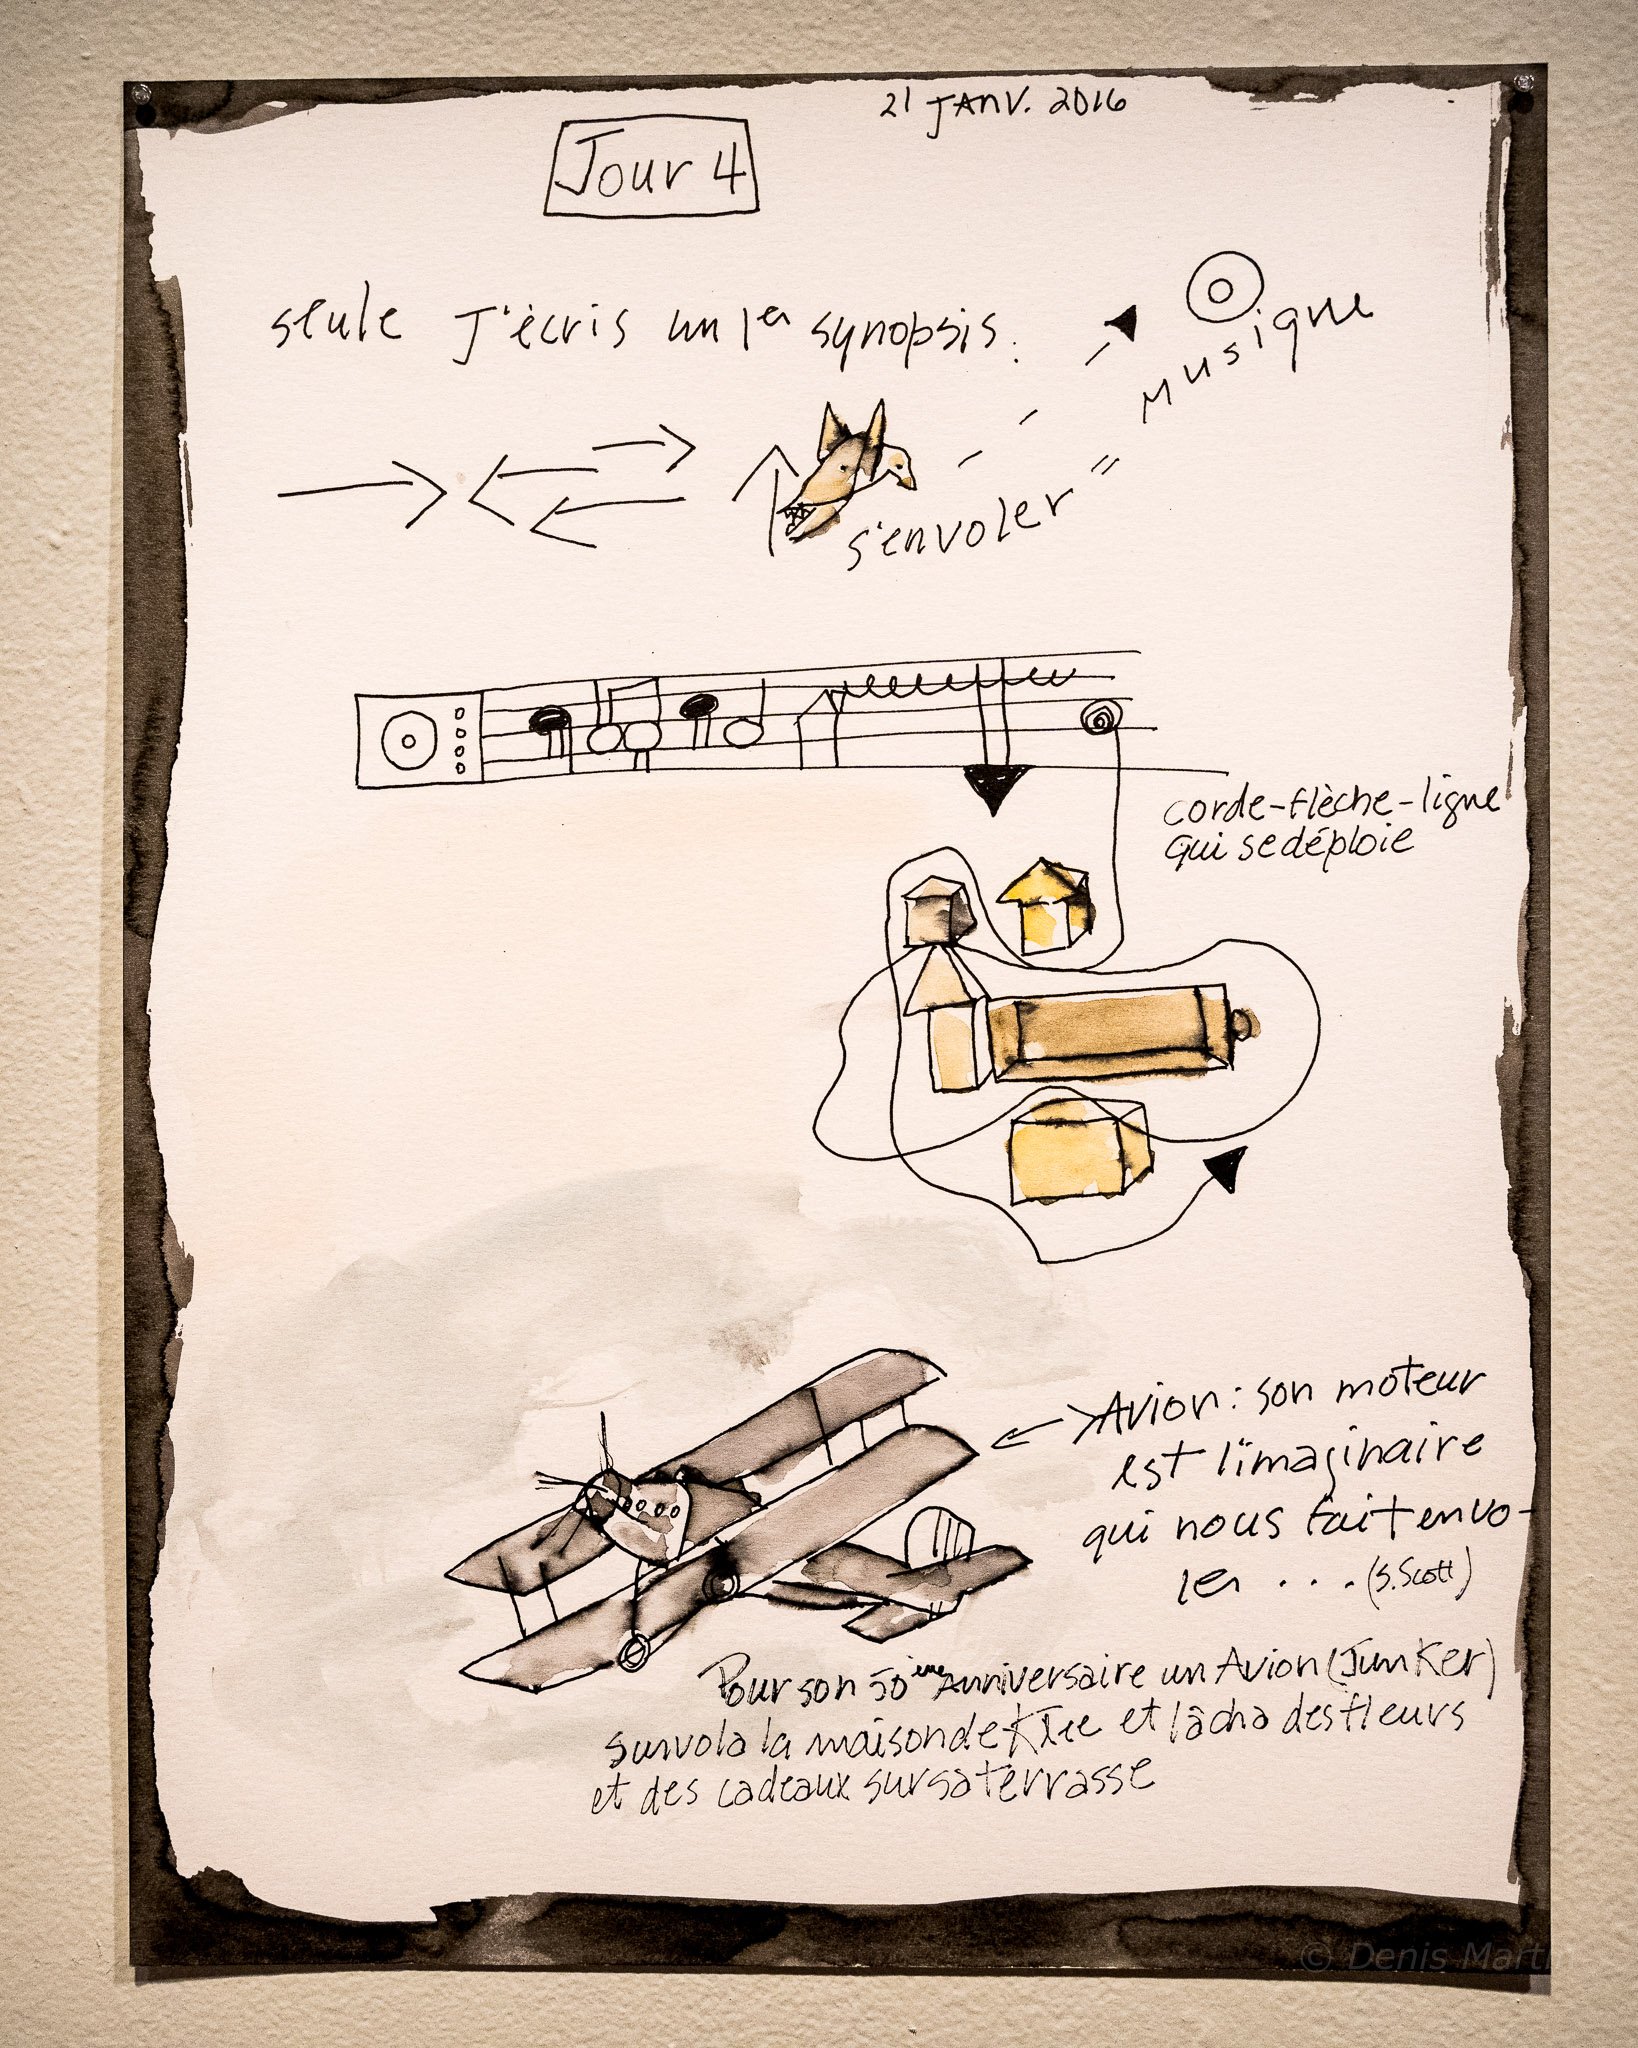 21 JANV. 2016
Jour 4
seule J'écris un 1er synopsis.
musique
s'envoler"
corde-flèche-ligne
qui se déploie
Avion: son moteur
est l'imaginaire
qui nous fait envo-
ler ... (S. Scott)
Pour son 50ième Anniversaire un Avion (Junker)
survola la maison de Klee et lâcha des fleurs
et des cadeaux sur sa terrasse
© Denis Marti